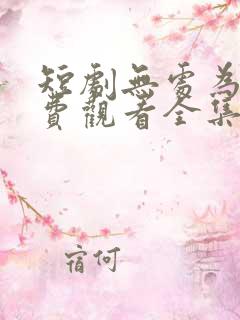 短劇無處為
費觀看全集
宿何